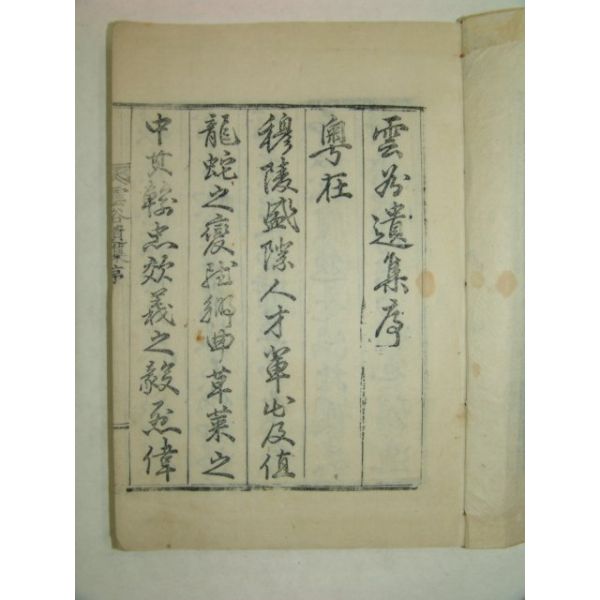 雲谷遺集序
粵在
穆陵盛際人才輩出及值
龍蛇之變雖鄉曲草萊之
中其輸忠效義之毅烈偉
雲谷遺集序